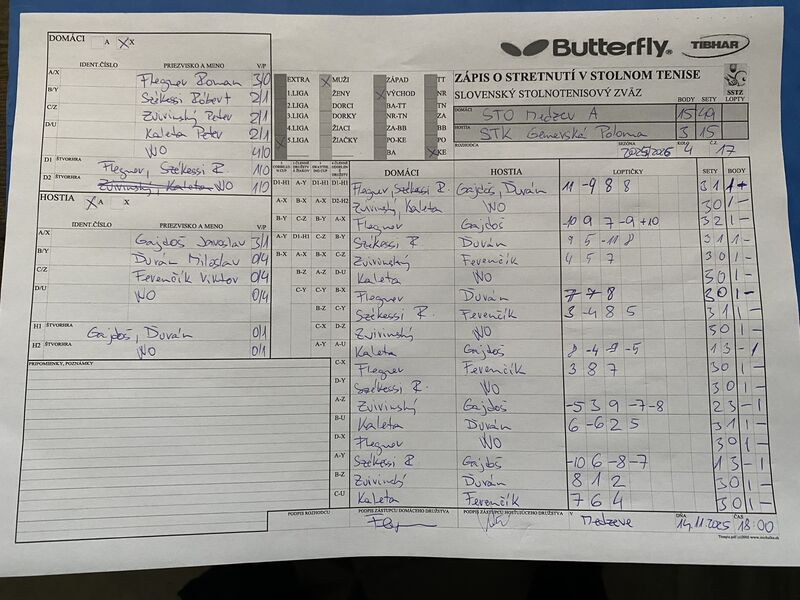 DOMÁCI A X X
IDENT.ČÍSLO PRIEZVISKO A MENO V/P
A/X Flegner Roman 3/0
B/Y Székessi Róbert 2/1
C/Z Zvirinský Peter 2/1
D/U Kaleta Peter 2/1
WO 4/0
D1 ŠTVORHRA Flegner, Székessi R. 1/0
D2 ŠTVORHRA Zvirinský, Kaleta WO 1/0
HOSTIA X A X
IDENT.ČÍSLO PRIEZVISKO A MENO V/P
A/X Gajdoš Jaroslav 3/1
B/Y Ďurán Miloslav 0/4
C/Z Ferenčík Viktor 0/4
D/U WO 0/4
H1 ŠTVORHRA Gajdoš, Ďurán 0/1
H2 ŠTVORHRA WO 0/1
PRIPOMIENKY, POZNÁMKY
Butterfly TIBHAR
EXTRA X MUŽI ZÁPAD TT
1.LIGA ŽENY X VÝCHOD NR
2.LIGA DORCI BA-TT TN
3.LIGA DORKY NR-TN ZA
4.LIGA ŽIACI ZA-BB BB
X 5.LIGA ŽIAČKY PO-KE PO
BA X KE
ZÁPIS O STRETNUTÍ V STOLNOM TENISE
SLOVENSKÝ STOLNOTENISOVÝ ZVÄZ
SSTZ
BODY SETY LOPTY
DOMÁCI STO Medzev A 15 49
HOSTIA STK Gemerská Poloma 3 15
ROZHODCA SEZÓNA 2025/2026 KOLO 4 Č.Z. 17
DOMÁCI HOSTIA LOPTIČKY SETY BODY
D1-H1 Flegner, Székessi R. Gajdoš, Ďurán 11 -9 8 8 3 1 1 -
D2-H2 Zvirinský, Kaleta WO 3 0 1 -
A-X Flegner Gajdoš -10 9 7 -9 +10 3 2 1 -
B-Y Székessi R Ďurán 9 5 -11 8 3 1 1 -
C-Z Zvirinský Ferenčík 4 5 7 3 0 1 -
D-U Kaleta WO 3 0 1 -
Flegner Ďurán 7 7 8 3 0 1 -
Székessi R. Ferenčík 3 -4 8 5 3 1 1 -
Zvirinský WO 3 0 1 -
A-U Kaleta Gajdoš 8 -4 -9 -5 1 3 - 1
C-X Flegner Ferenčík 3 8 7 3 0 1 -
D-Y Székessi R. WO 3 0 1 -
A-Z Zvirinský Gajdoš -5 3 9 -7 -8 2 3 - 1
B-U Kaleta Ďurán 6 -6 2 5 3 1 1 -
D-X Flegner WO 3 0 1 -
A-Y Székessi R Gajdoš -10 6 -8 -7 1 3 - 1
B-Z Zvirinský Ďurán 8 1 2 3 0 1 -
C-U Kaleta Ferenčík 7 6 4 3 0 1 -
PODPIS ROZHODCU PODPIS ZÁSTUPCU DOMÁCEHO DRUŽSTVA PODPIS ZÁSTUPCU HOSŤUJÚCEHO DRUŽSTVA V Medzeve DŇA 14.11.2025 ČAS 18:00